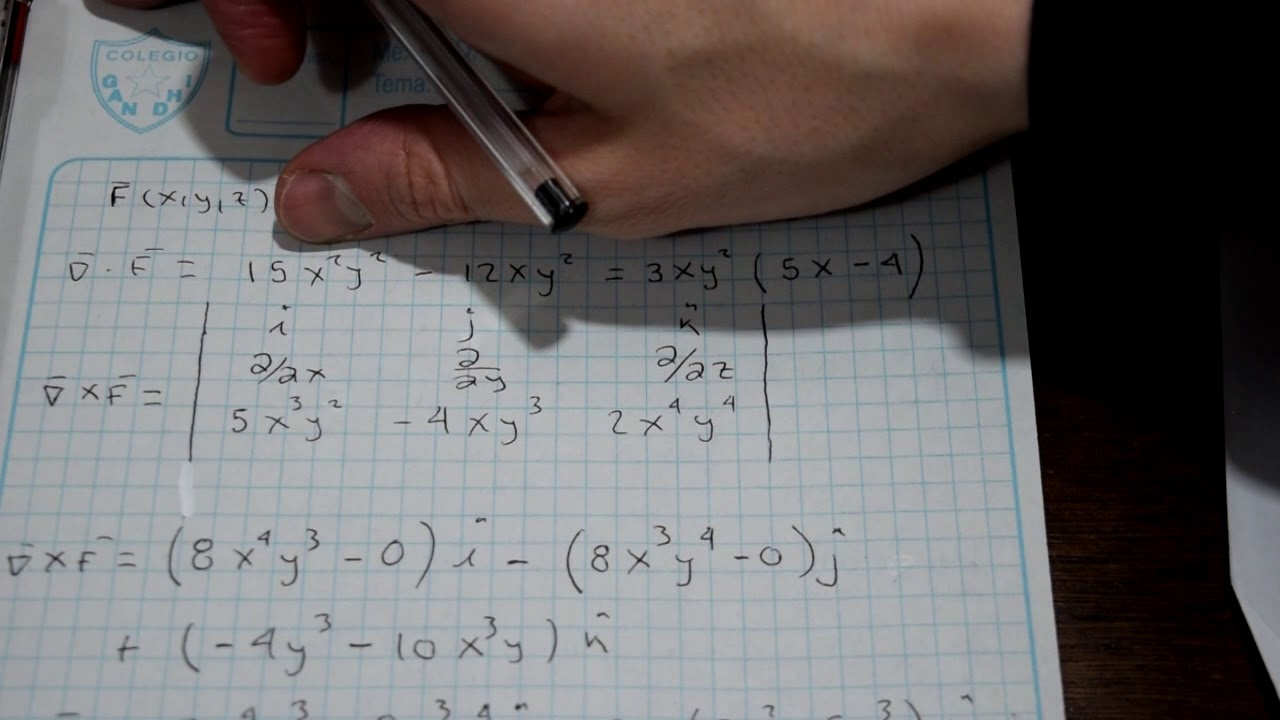 COLEGIO
GANDHI
Tema:
F̄(x,y,z)
∇̄ · F̄ = 15x²y² - 12xy² = 3xy²(5x - 4)
î ĵ k̂
∂/∂x ∂/∂y ∂/∂z
∇̄ × F̄ =
5x³y² -4xy³ 2x⁴y⁴
∇̄ × F̄ = (8x⁴y³ - 0)î - (8x³y⁴ - 0)ĵ
+ (-4y³ - 10x³y)k̂